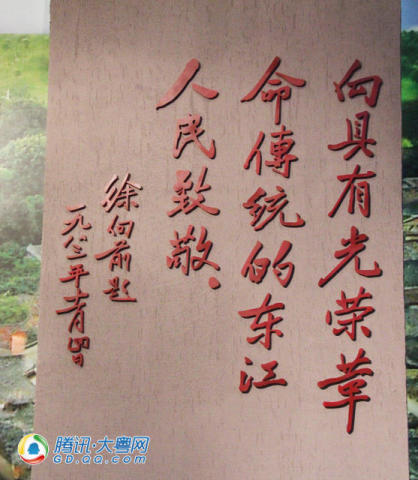 向具有光荣革
命傳统的东江
人民致敬、
徐向前题
一九八三年十二月四日
腾讯·大粤网
GD.qq.com